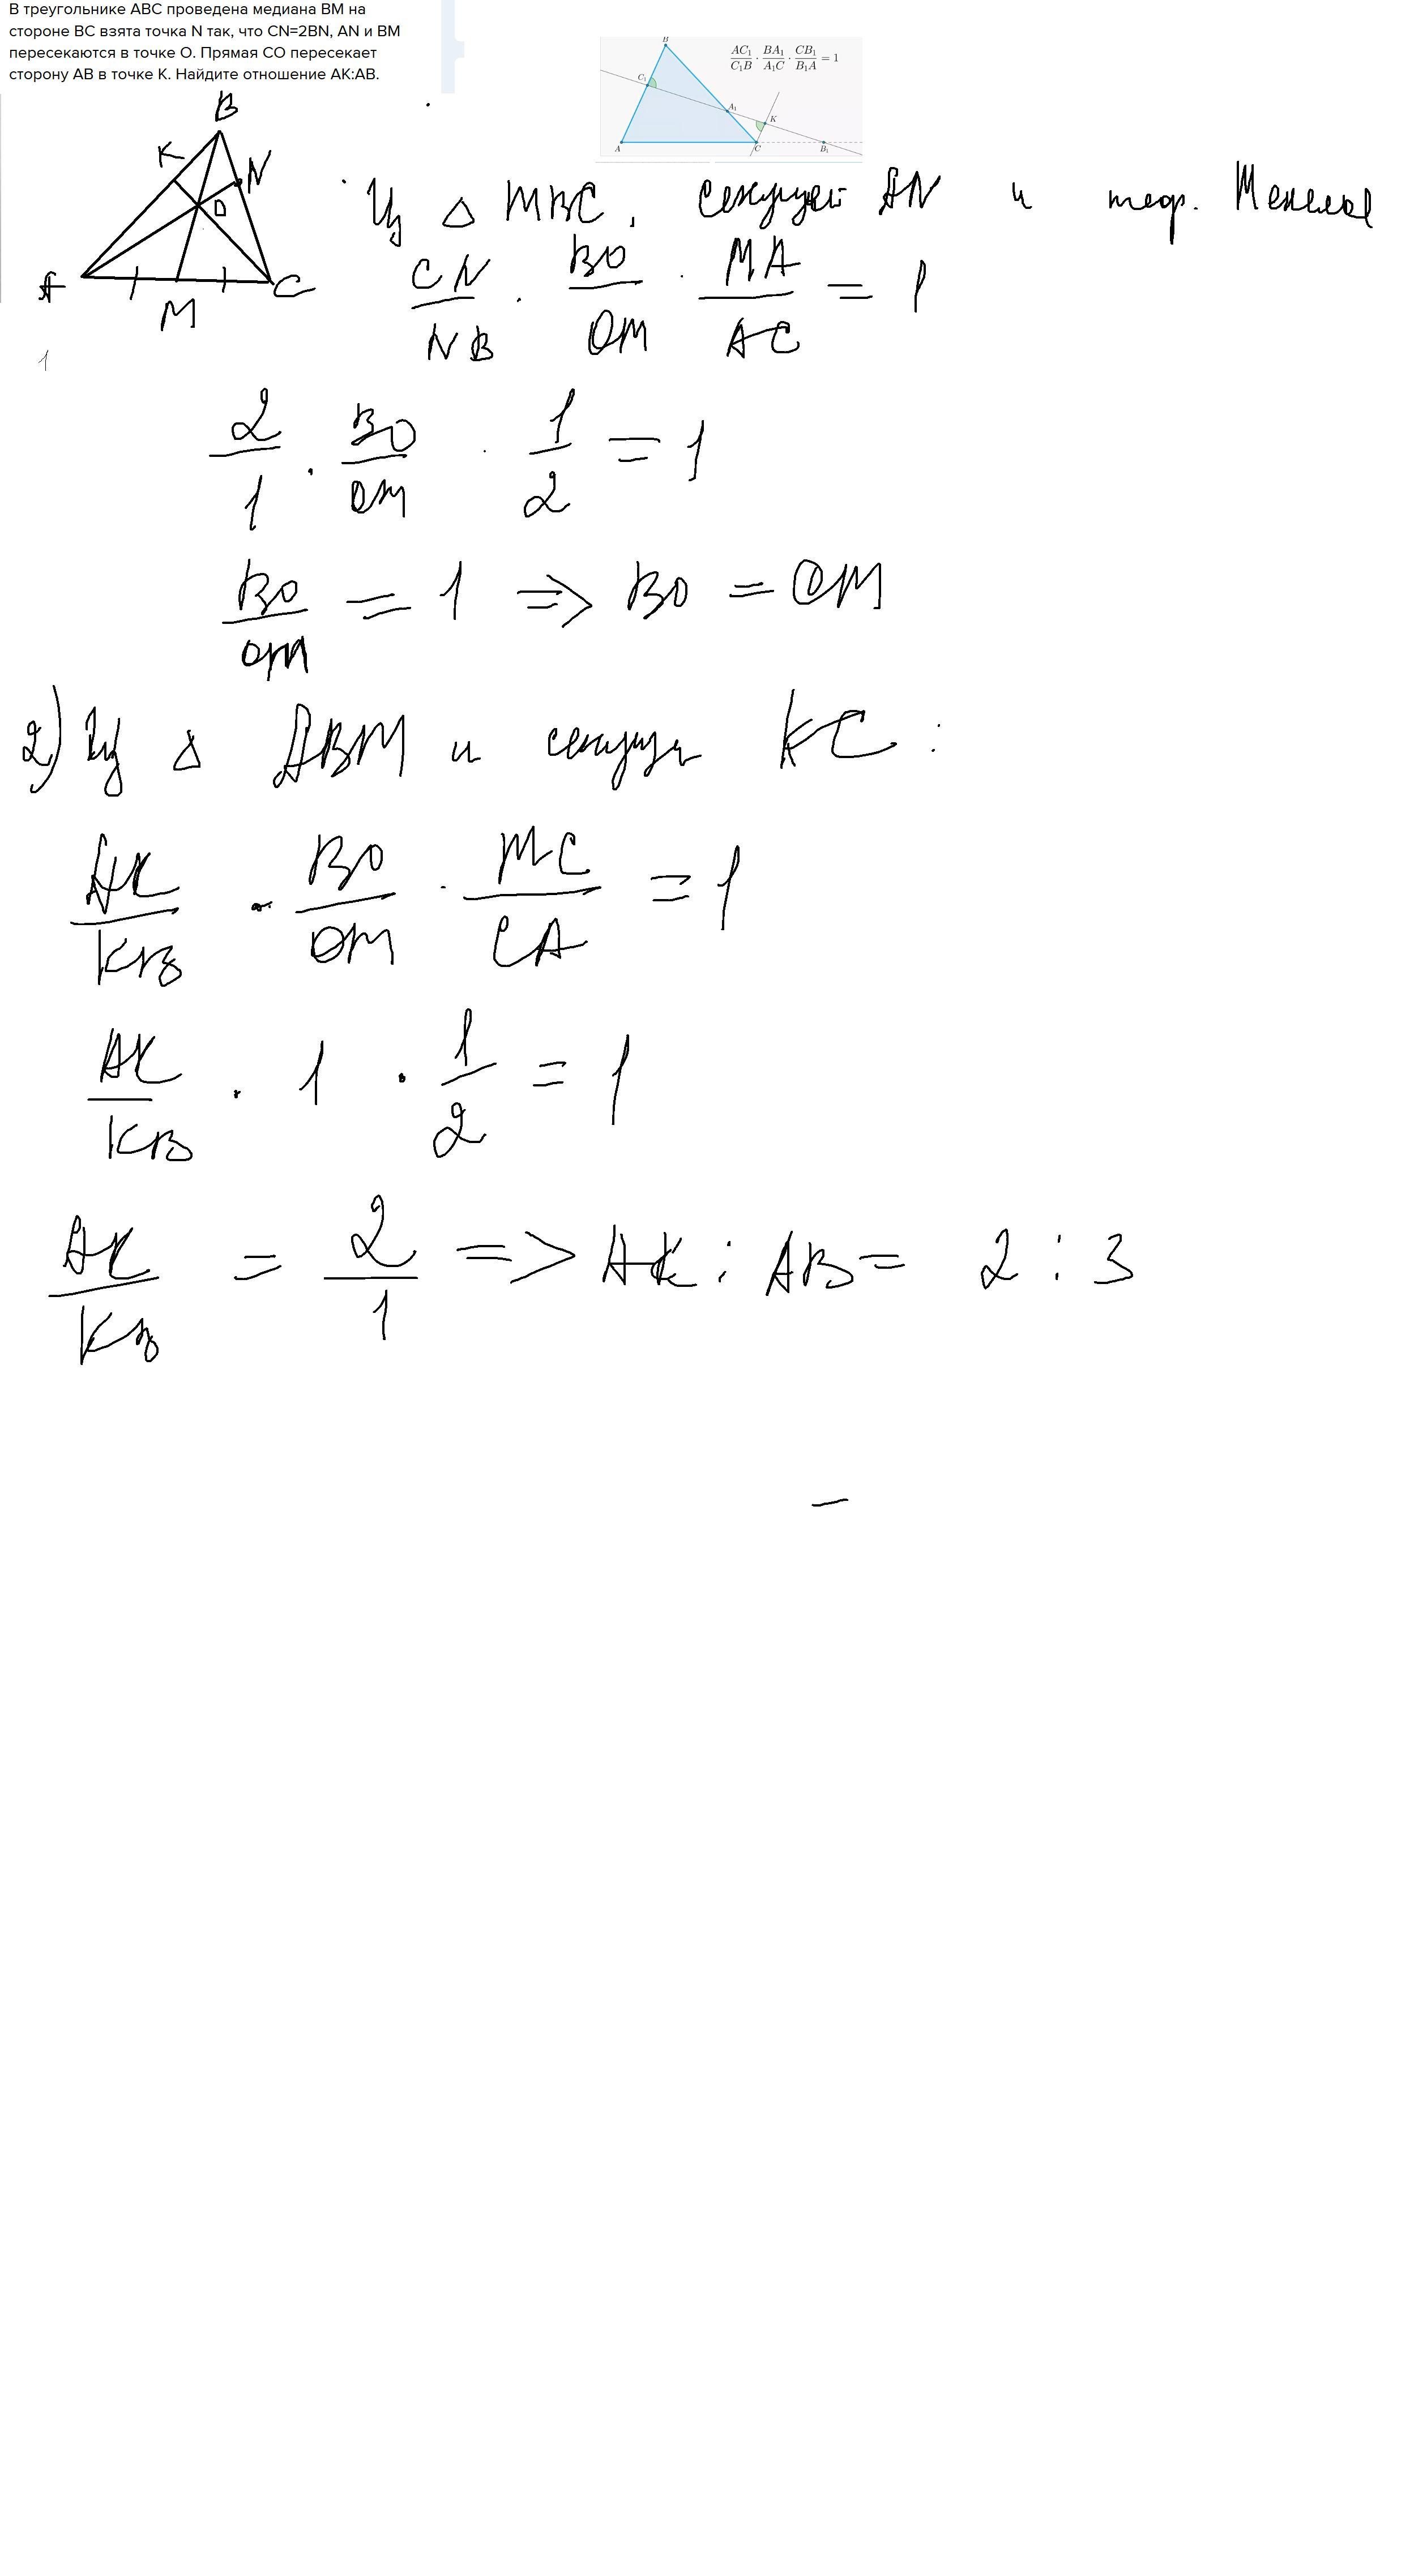 В треугольнике ABC проведена медиана BM на
стороне BC взята точка N так, что CN=2BN, AN и BM
пересекаются в точке O. Прямая CO пересекает
сторону AB в точке K. Найдите отношение AK:AB.
B
C₁
A₁
K
A
C
B₁
AC₁/C₁B · BA₁/A₁C · CB₁/B₁A = 1
B
K
N
O
A
M
C
1
Из △ MBC, секущей AN и теор. Менелая
CN/NB · BO/OM · MA/AC = 1
2/1 · BO/OM · 1/2 = 1
BO/OM = 1 => BO = OM
2) Из △ ABM и секущей KC :
AK/KB · BO/OM · MC/CA = 1
AK/KB · 1 · 1/2 = 1
AK/KB = 2/1 => AK : AB = 2 : 3